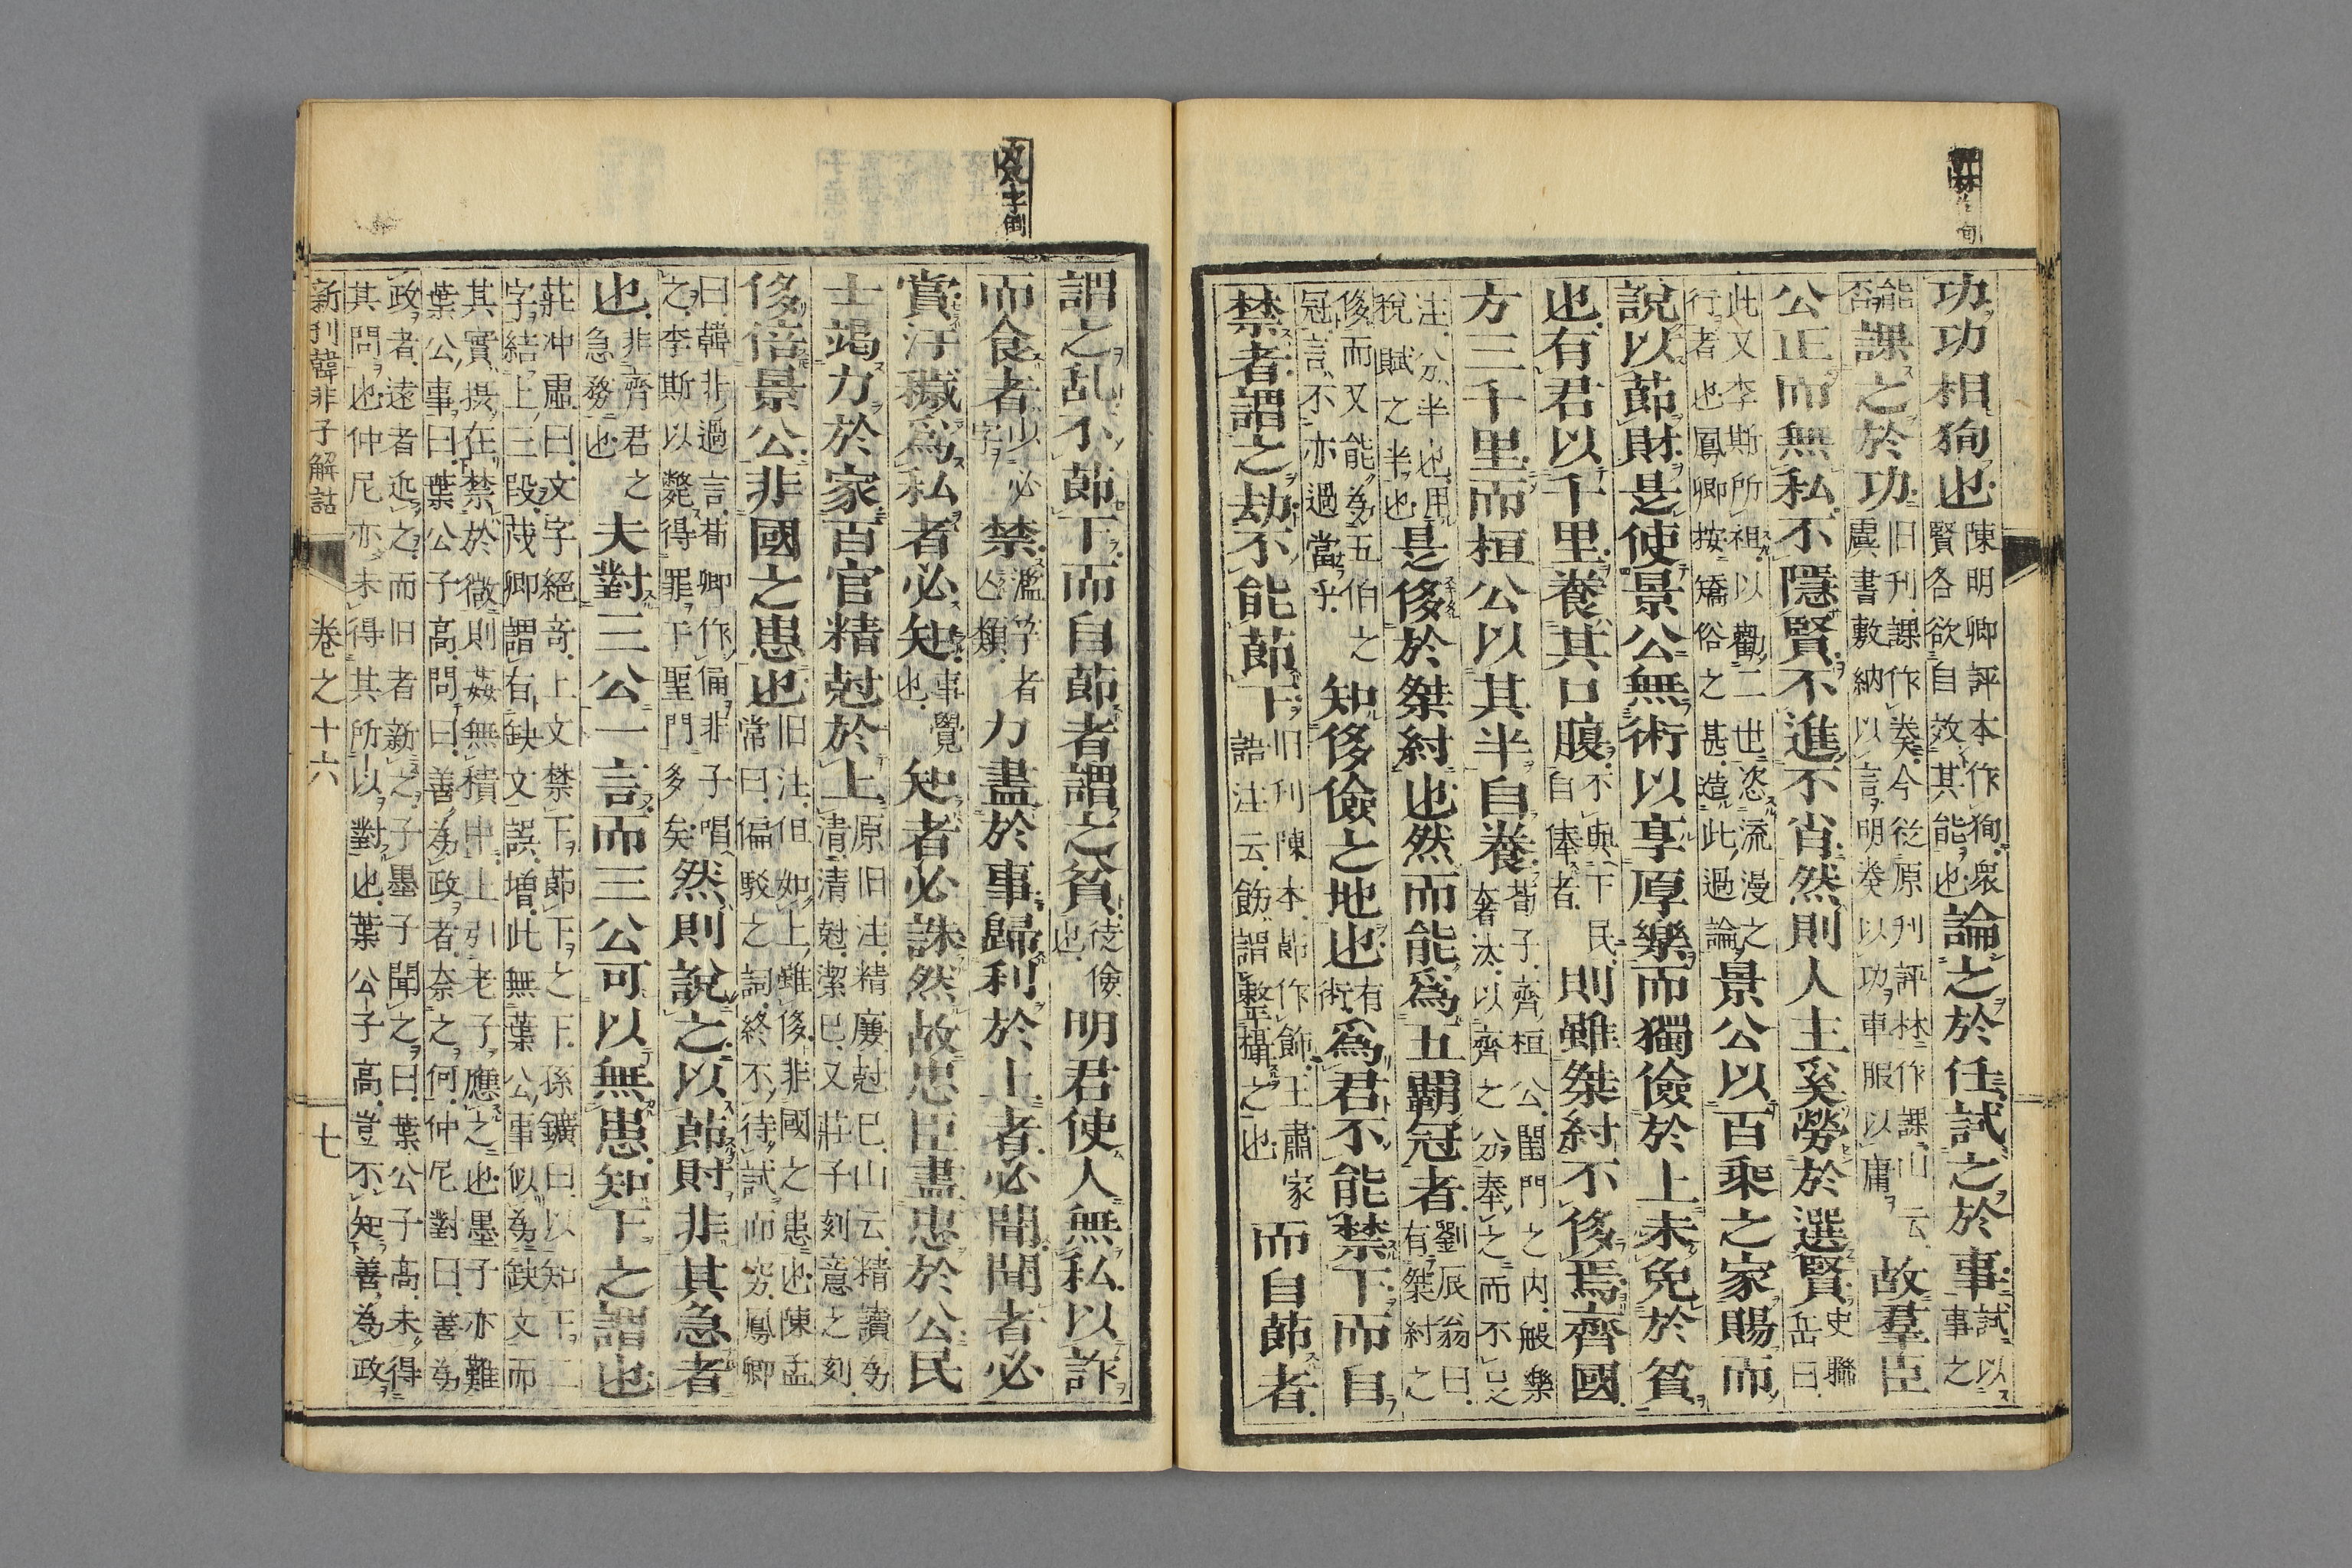 功功相狥也陳明卿評本作狥衆賢各欲自效其能也論之於任試之於事試以事之
能否課之於功旧刊課作奏今從原刋評林作課山云虞書敷納以言明奏以功車服以庸故羣臣
公正而無私不隱賢不進不肖然則人主奚勞於選賢史聯岳曰
此文李斯所祖以觀二世恣流漫之行者也鳳卿按矯俗之甚造此過論景公以百乘之家賜而
說以莭財是使景公無術以享厚樂而獨儉於上未免於貧
也有君以千里養其口腹不與下民自俸者則雖桀紂不侈焉齊國
方三千里而桓公以其半自養荀子齊桓公閨門之内般樂奢汰以齊之分奉之而不足
注分半也用稅賦之半也是侈於桀紂也然而能爲五覇冠者劉辰翁曰有桀紂之
侈而又能為五伯之冠言不亦過當乎知侈儉之地也有術爲君不能禁下而自
禁者謂之劫不能莭下旧刊陳本莭作飾王肅家語注云飭謂整攝之也而自莭者
謂之乱不莭下而自莭者謂之貧徒儉也明君使人無私以詐
而食者少必字禁濫竽者亾類力盡於事歸利於上者必聞聞者必
賞汙穢爲私者必知事覺也知者必誅然故忠臣盡忠於公民
士竭力於家百官精尅於上原旧注精廉尅己山云精讀為清清尅潔己又莊子刻意之刻
侈倍景公非國之患也旧注但如上雖侈非國之患也陳孟常曰偏駁之詞終不待試而窮鳳卿
曰韓非過言荀卿作俑非子唱之李斯以斃得罪于聖門多矣然則說之以莭財非其急者
也非齊君之急務也夫對三公一言而三公可以無患知下之謂也
莊冲虛曰文字絕奇上文禁下莭下之下孫鑛曰以知下二字結上三段茂卿謂有缺文誤増此無葉公事似為缺文而
其實摂在禁於微則姦無積中上引老子應之也墨子亦難葉公事曰葉公子高問曰善為政者奈之何仲尼對曰善為
政者遠者近之而旧者新之子墨子聞之曰葉公子高未得其問也仲尼亦未得其所以對也葉公子高豈不知善為政
新刋韓非子解詁 卷之十六 七